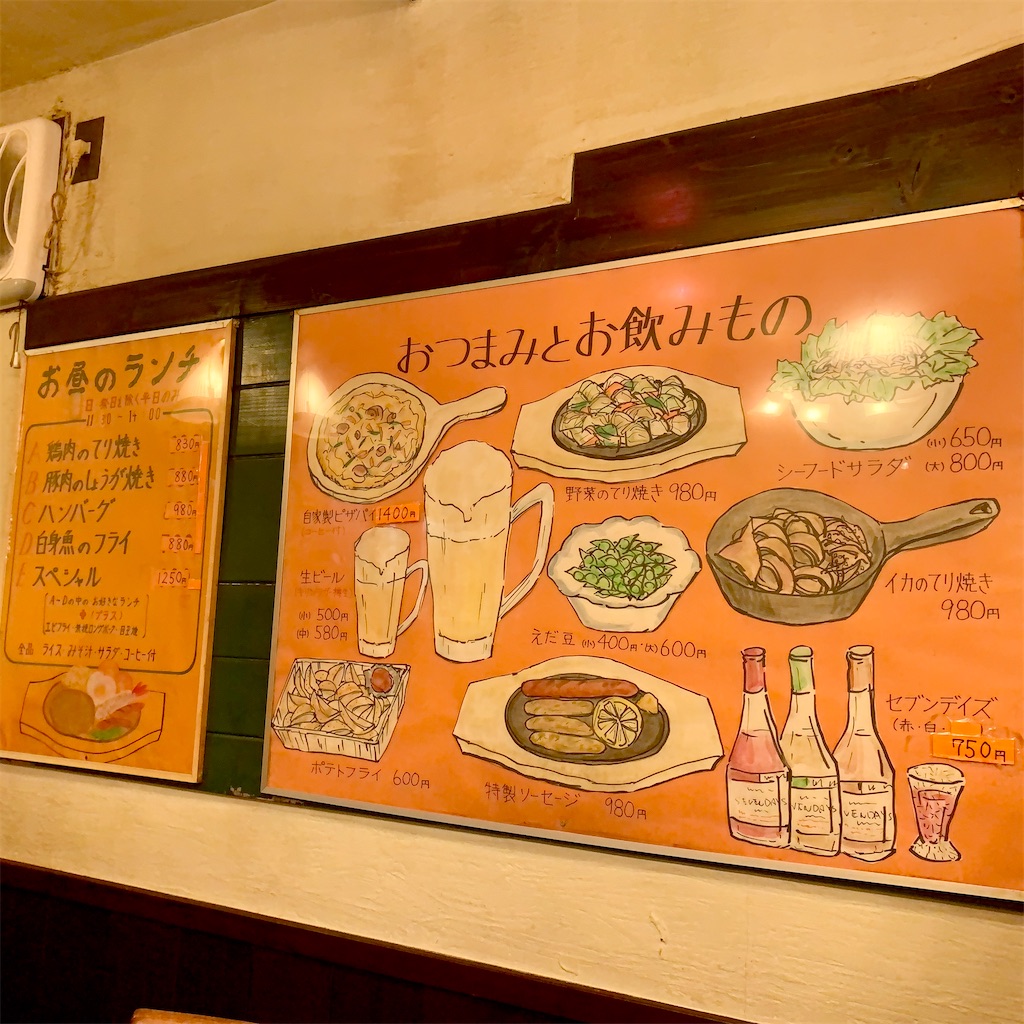 お昼のランチ
11:30-14:00
A 鶏肉のてり焼き 830円
B 豚肉のしょうが焼き 880円
C ハンバーグ 980円
D 白身魚のフライ 880円
E スペシャル 1250円
A〜Dの中のお好きなランチ
(プラス)
エビフライ・目玉焼
全品 ライス・みそ汁・サラダ・コーヒー付
おつまみとお飲みもの
自家製ピザパイ 1400円
野菜のてり焼き 980円
シーフードサラダ (小) 650円
(大) 800円
生ビール
(小) 500円
(中) 580円
えだ豆 (小) 400円・(大) 600円
イカのてり焼き
980円
ポテトフライ 600円
特製ソーセージ 980円
セブンデイズ
(赤・白
750円
SEVENDAYS
VENDAYS
VENDAYS